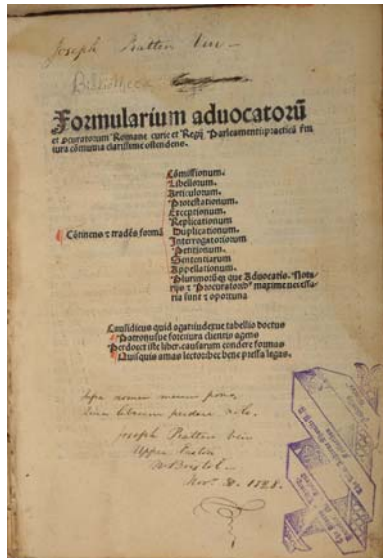 Joseph Bratten
Bibliotheca
Formularium aduocatorū
et procuratorum Romane curie et Regij Parleamenti: practicā
iura cōmunia clarissime ostendens.
Cōmissionum.
Libellorum.
Articulorum.
Protestationum.
Exceptionum.
Replicationum
Duplicationum.
Cōtinens ⁊ tradēs formā Interrogatoriorum
Petitionum.
Sententiarum
Appellationum.
Plurimorūq que Aduocatis. Nota
rijs ⁊ Procuratorib⁹ maxime necessa
ria sunt ⁊ oportuna
Causidicus quid agat: iudexue tabellio doctus
Patronusue foret: iura clientis agens
Perdocet iste liber. causarum condere formas
Quisquis amas lector: hec bene pressa legas.
nomen meum pono,
librum perdere nolo.
Joseph Bratten
Upper Easton
Nr Bristol
Novr 1828.